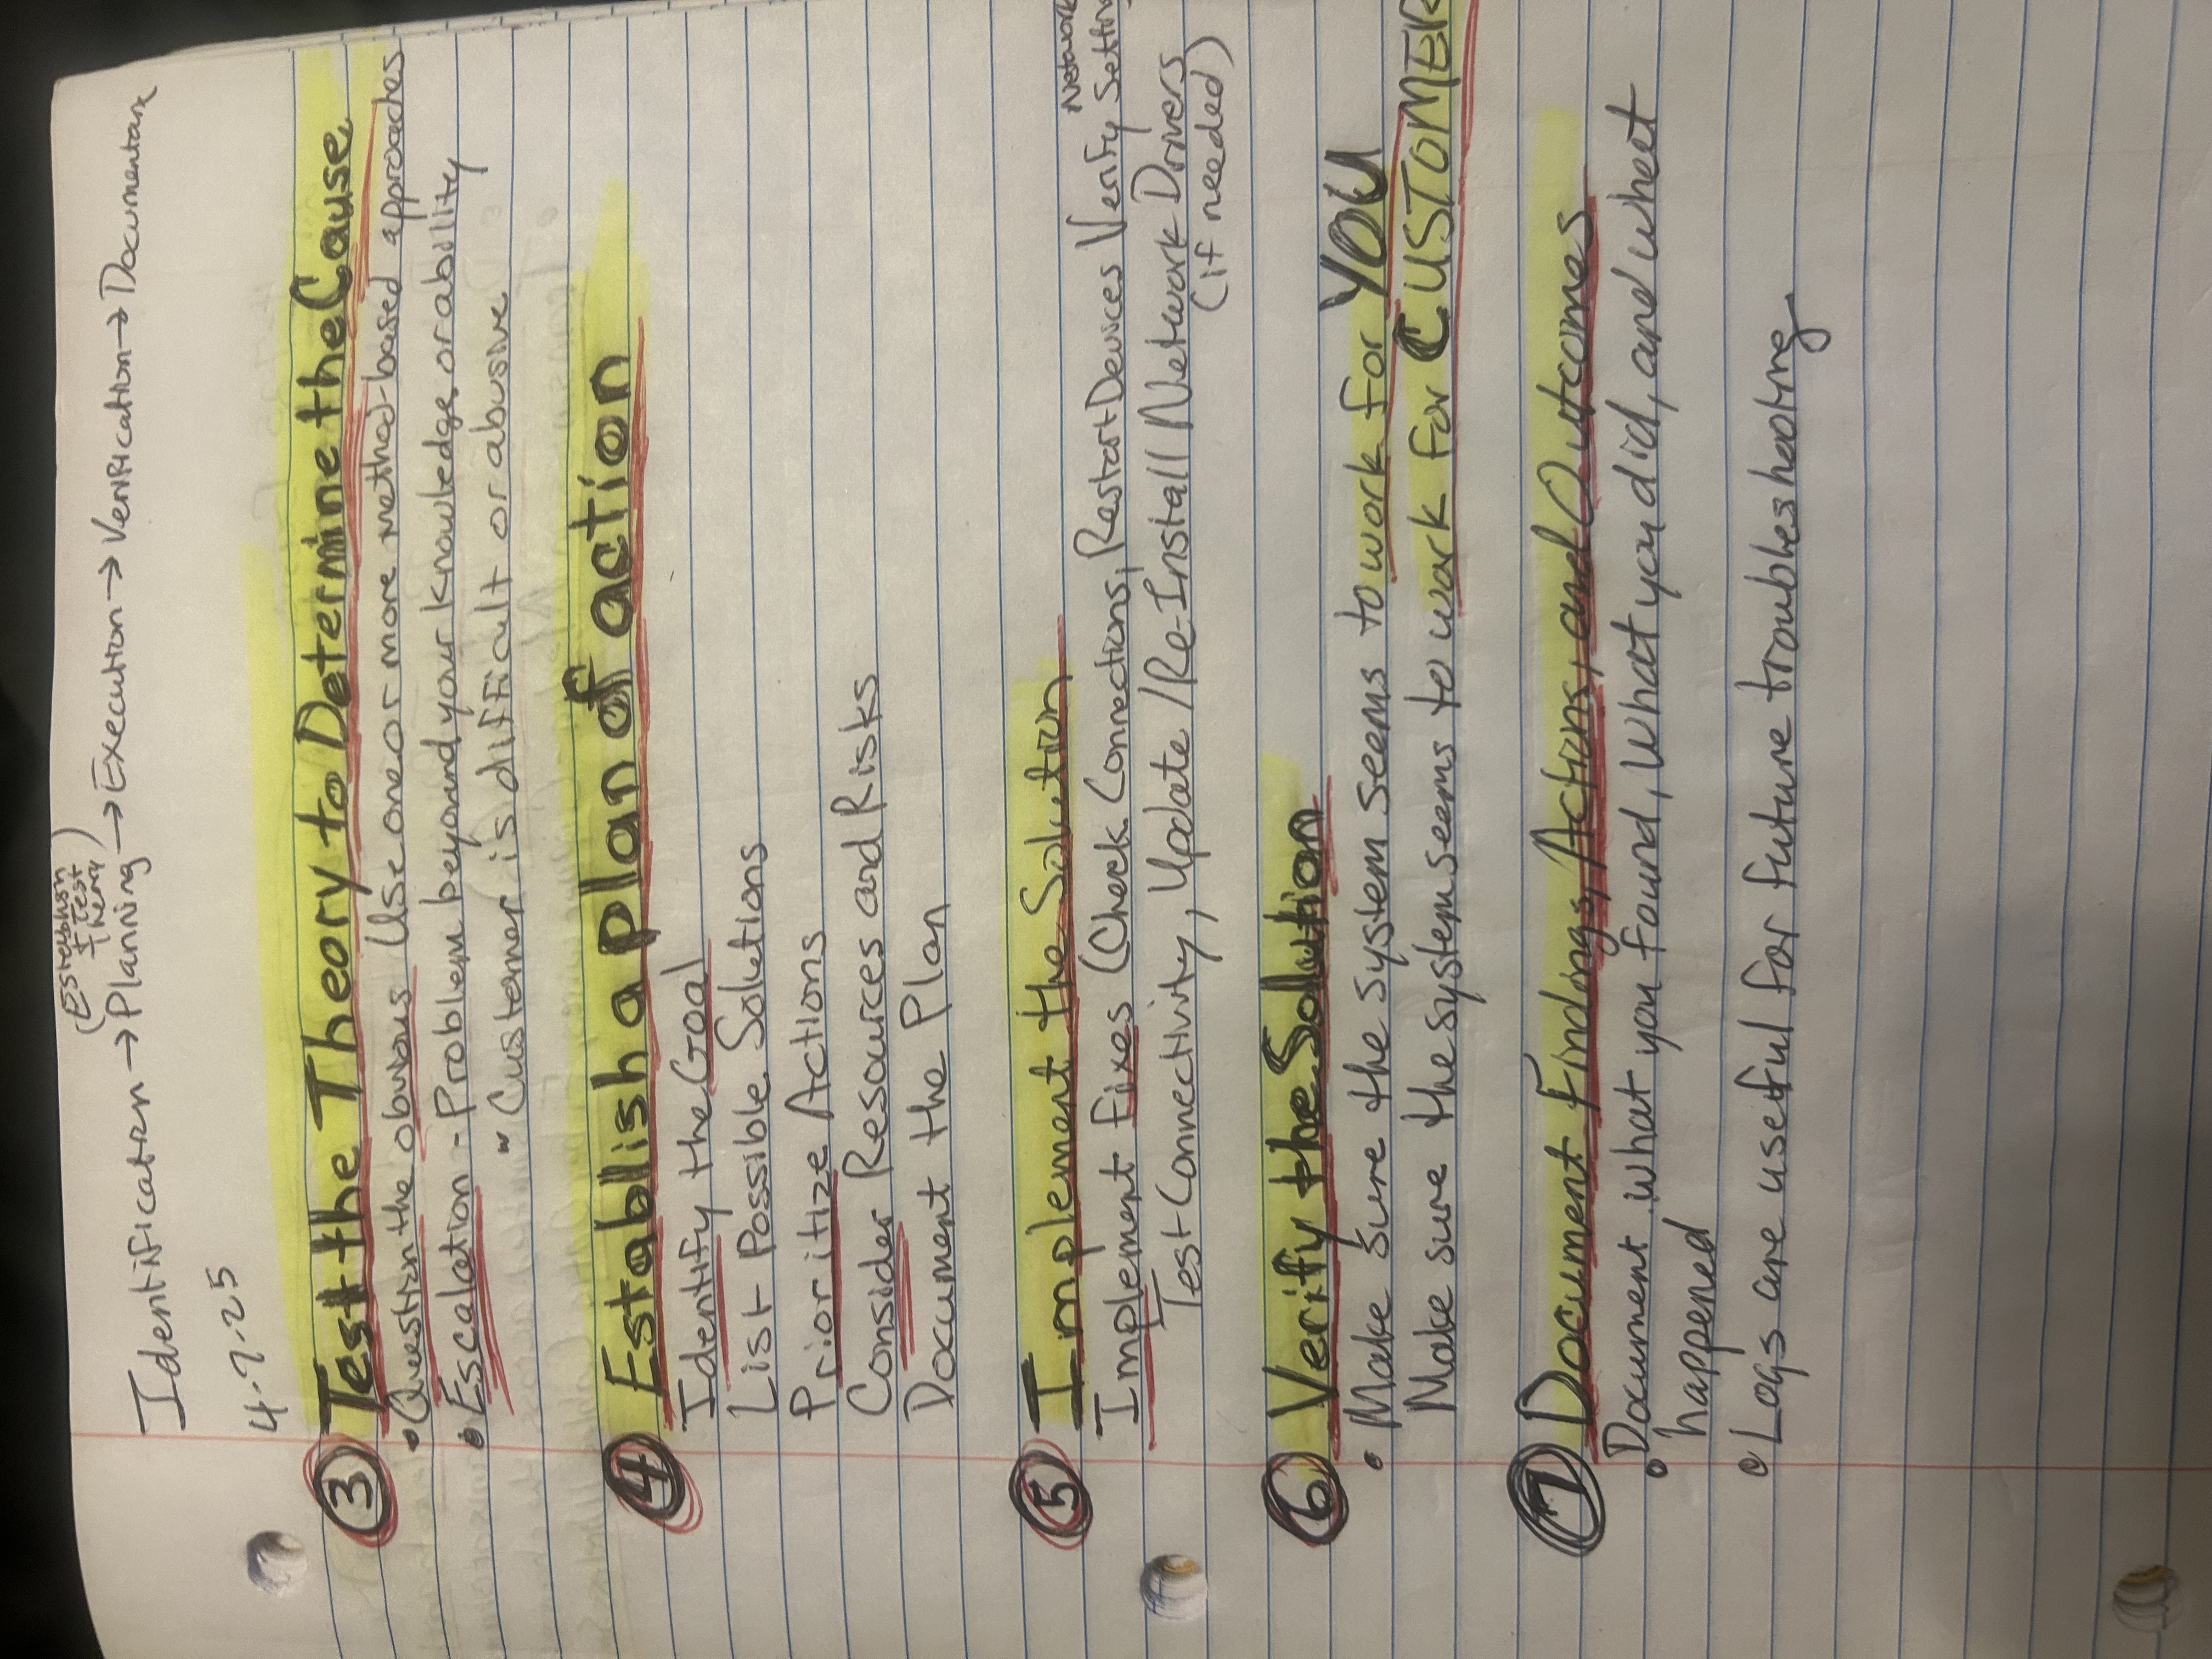 (Establish
+ Test
Theory)
Identification → Planning → Execution → Verification → Documentatn
4-7-25
③ Test the Theory to Determine the Cause
• Question the obvious Use one or more method-based approaches
• Escalation - Problem beyound your knowledge or ability
- Customer is difficult or abusive
④ Establish a plan of action
Identify the Goal
List Possible Solutions
Prioritize Actions
Consider Resources and Risks
Document the Plan
⑤ Implement the Solution
Network
Implement Fixes (Check Connections, Restart Devices Verify Setting
Test Connectivity, Update / Re-Install Network Drivers
(if needed)
⑥ Verify the Solution
• Make sure the system seems to work for YOU
Make sure the system seems to work for CUSTOMER
⑦ Document Findings, Actions, and Outcomes
• Document what you found, What you did, and what
happened
• Logs are useful for future troubleshooting